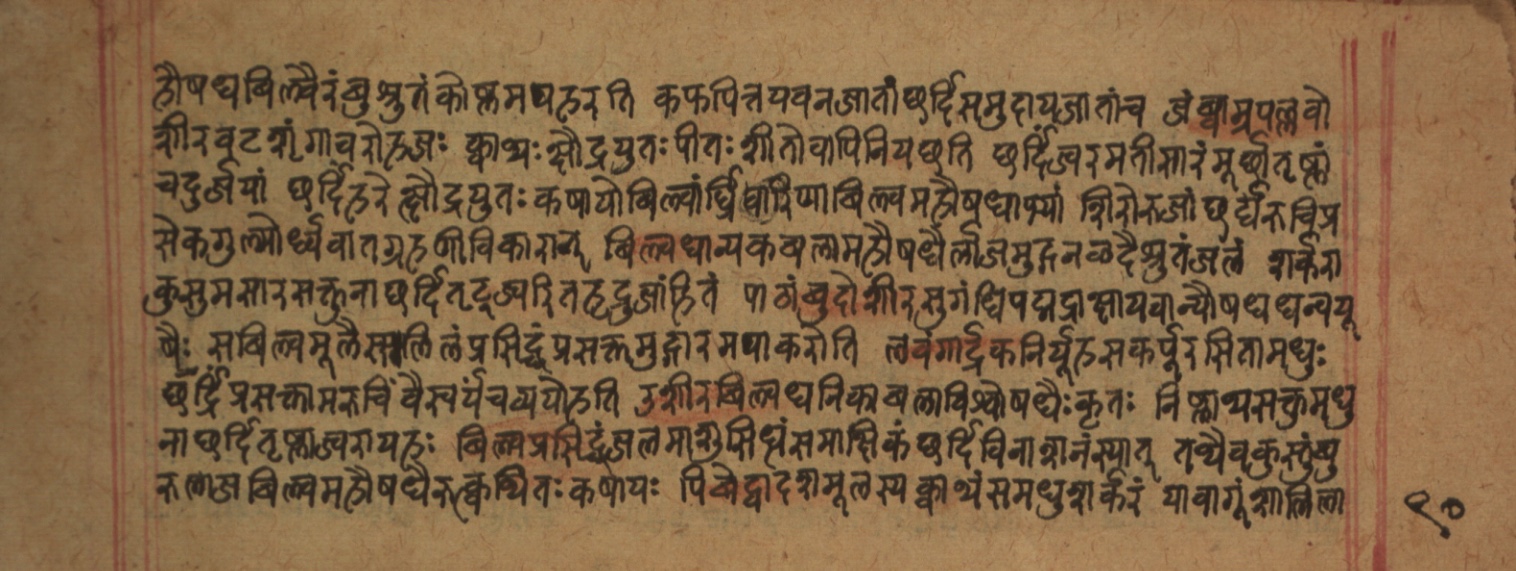 हौषधबिल्वैरंबुश्रुतं कोष्णमपहरति कफपित्तपवनजातां छर्दिसमुदायजातांच जंब्वाम्रपल्लवो
शीरवटशृंगावरोहजः क्वाथः क्षौद्रयुतः पीतः शीतो वापिनियछति छर्दिंज्वरमतीसारं मूर्छातृष्णां
चदुर्जयां छर्दिहरे क्षौद्रयुतः कषायो बिल्वांघ्रि बिल्वमहौषधाभ्यां शिरोरुजां छर्द्यरुचिप्र
सेकगुल्मोर्ध्ववातग्रहणीविकारान् बिल्वधान्यकबलामहौषधैर्लाजमुद्गनळदैश्रुतंजलं शर्करा
कुसुमसारसक्तुना छर्दितृट्ज्वरितहृद्रुजांहितं पाठांबुदोशीरसुगंधिपद्मद्राक्षायवान्यौषधधन्वयू
षैः सबिल्वमूलैसलिलंप्रसिद्धं प्रसक्तमुद्गारमपाकरोति लवंगार्द्रकनिर्यूहसकर्पूरसितामधुः
छर्द्दिं प्रसक्तामरुचिं वैस्वर्यंचव्यपोहति उशीरबिल्वधनिकाबलाविश्वोषधैः कृतः निष्क्वाथसक्तुमधु
नाछर्दितृष्णाज्वरापहः बिल्वप्रसिद्धंजलमाशुसिधंसमाक्षिकं छर्दिविनाशनंस्यात् तथैवकुस्तुंबु
रुलाजबिल्वमहौषधैरुत्क्वथितः कषायः पिबेद्वादशमूलस्य क्वाथंसमधुशर्करं यावागूंशालिला
९०